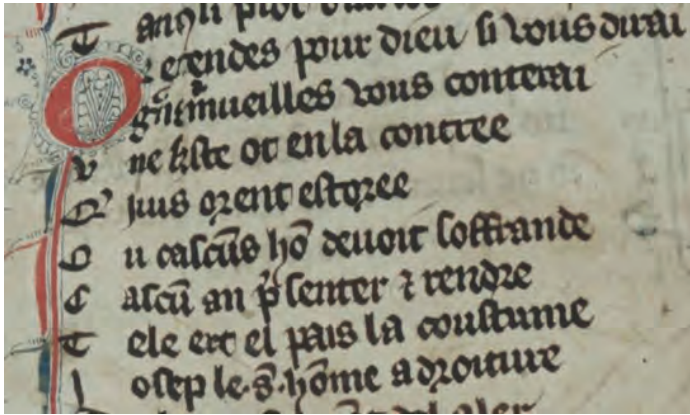 Or entendes pour dieu si vous dirai
gñt mueilles vous conterai
Vne feste ot en la contree
Q' iuus orent estoree
Ou cascūs hō deuoit soffrande
Cascū an p̄senter ⁊ rendre
Tele ert el pais la coustume
Iosep le .s. hōme a droiture